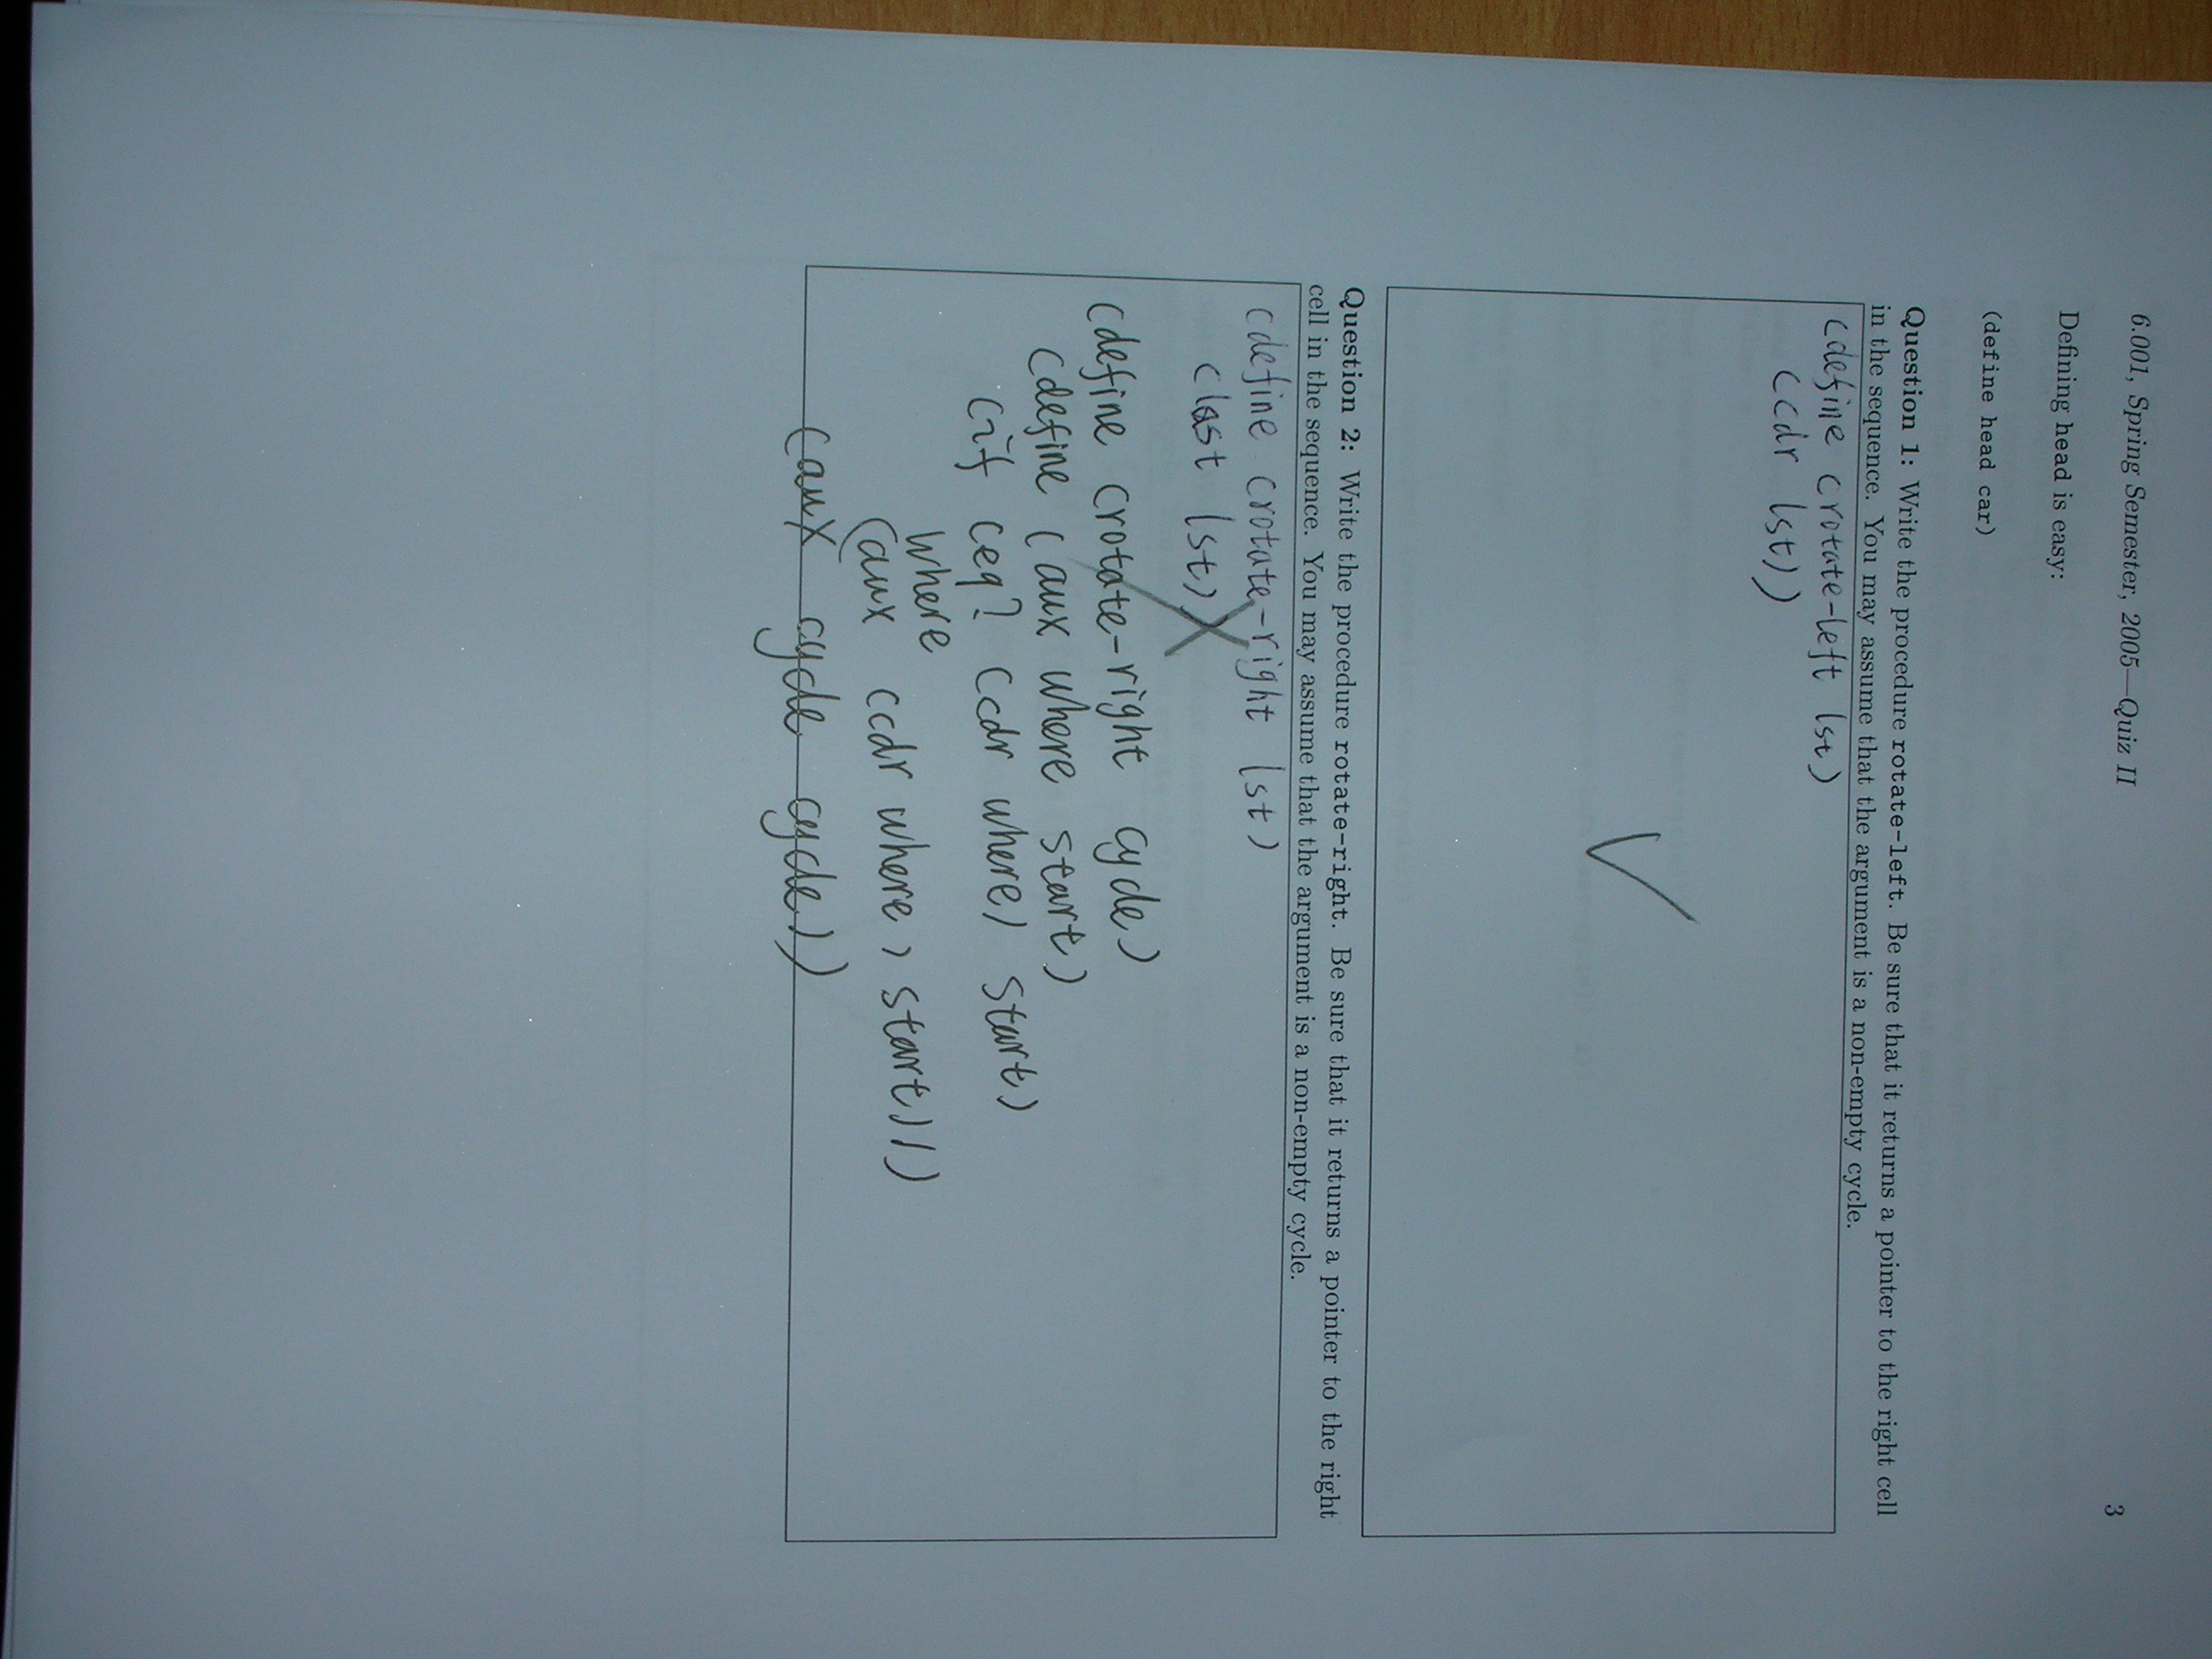 6.001, Spring Semester, 2005—Quiz II 3
Defining head is easy:
(define head car)
Question 1: Write the procedure rotate-left. Be sure that it returns a pointer to the right cell
in the sequence. You may assume that the argument is a non-empty cycle.
(define (rotate-left lst)
(cdr lst))
Question 2: Write the procedure rotate-right. Be sure that it returns a pointer to the right
cell in the sequence. You may assume that the argument is a non-empty cycle.
(define (rotate-right lst)
(last lst))
(define (rotate-right cycle)
(define (aux where start)
(if (eq? (cdr where) start)
where
(aux (cdr where) start)))
(aux cycle cycle))